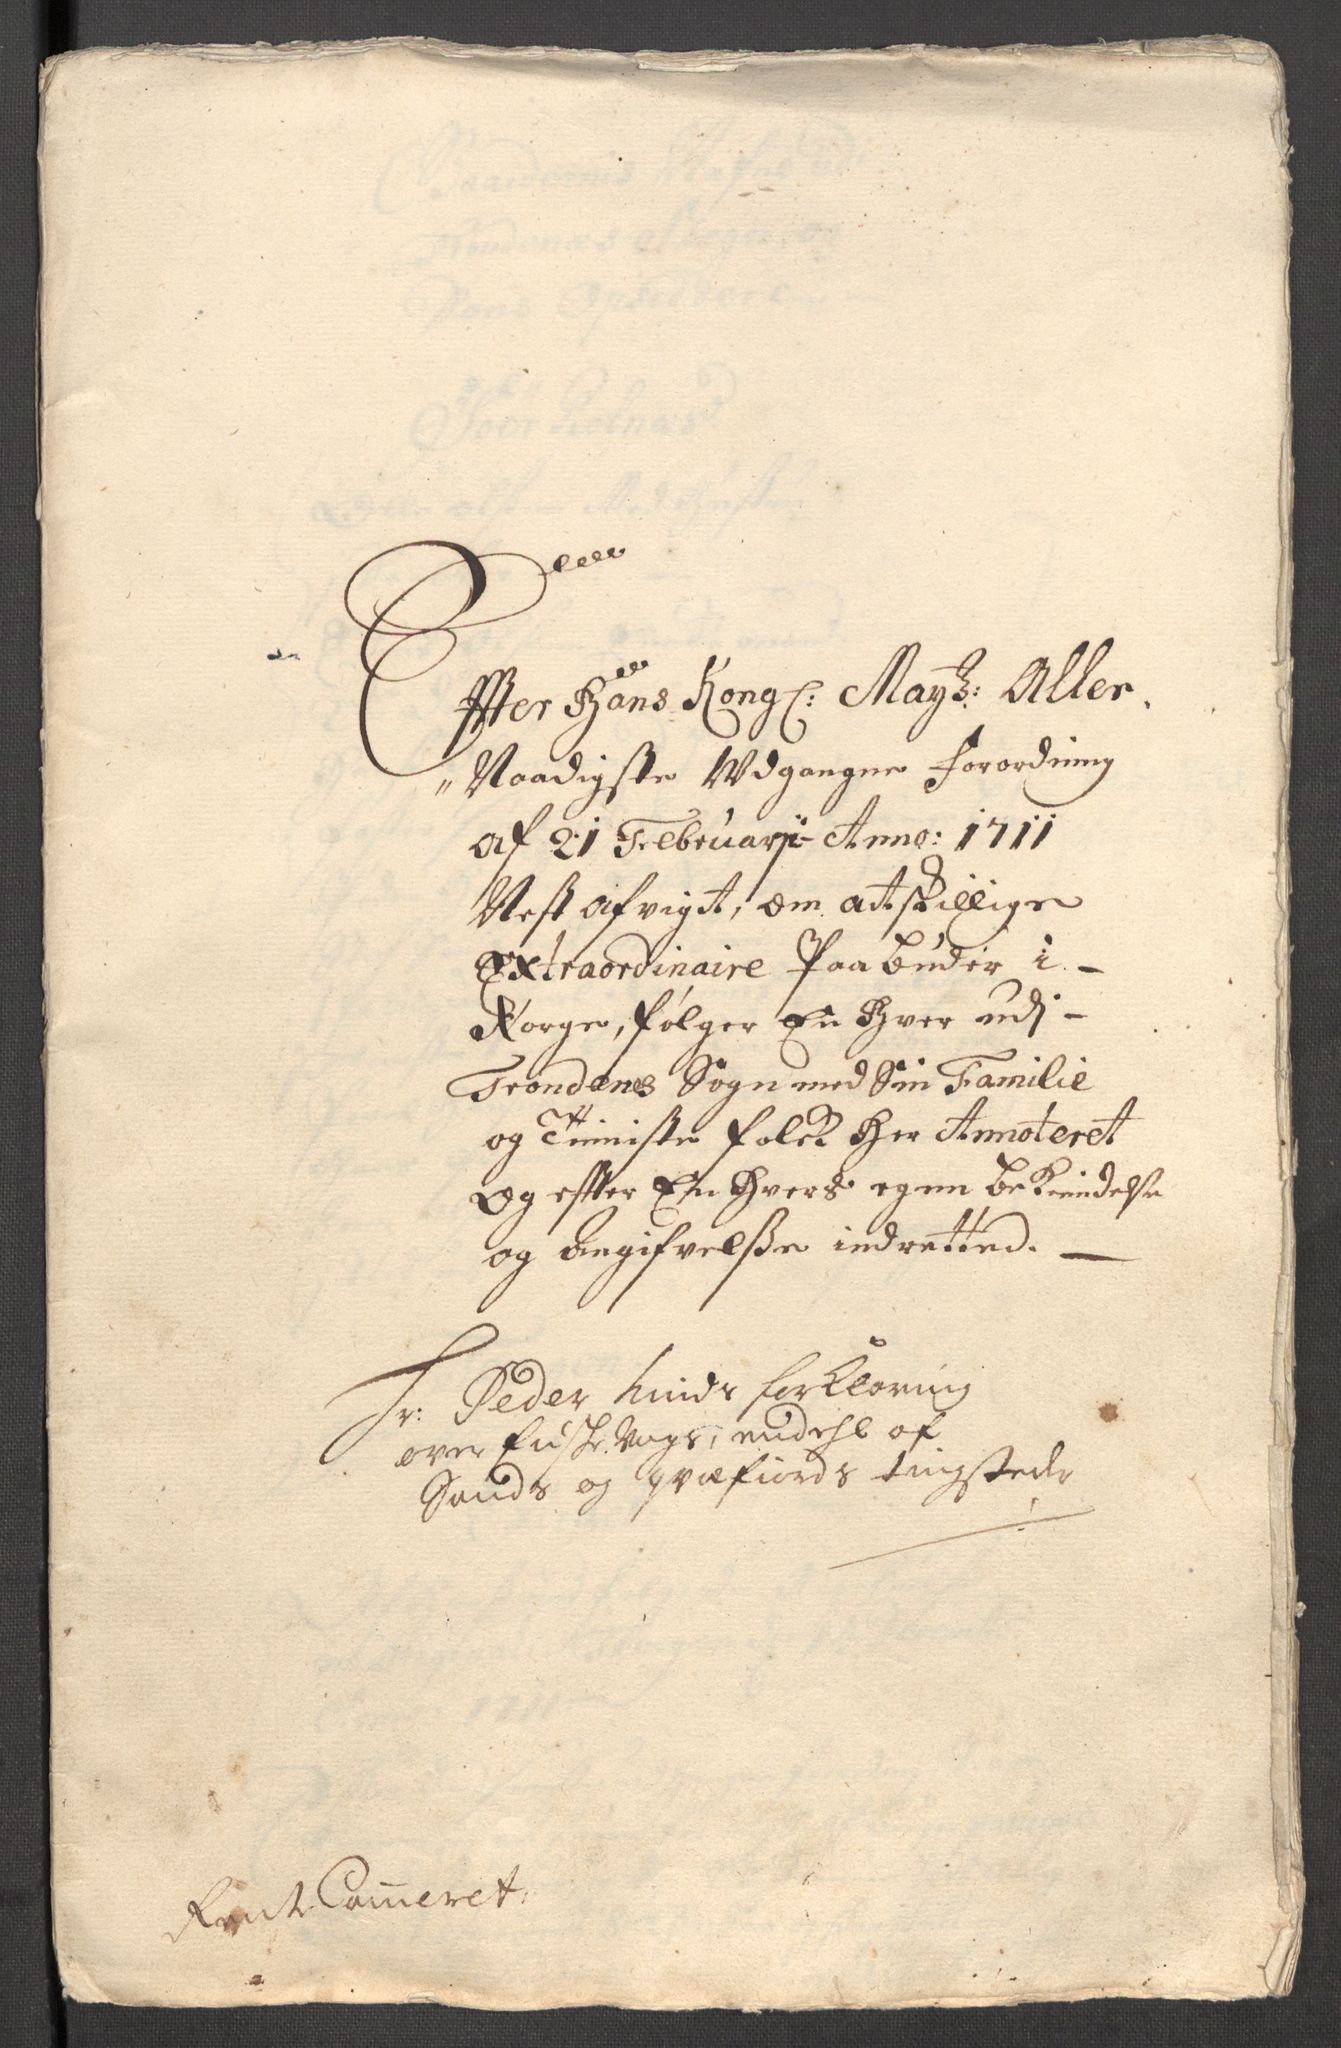 Effter Hans Kong: Mayts: Aller
"Naadigste Udgangne Forordning
af 21 Februarji Anno: 1711
Nest afvigt, om atskillige
Extraordinaire Paabuder i -
Norge, følger En hver udj -
Trondenes Sogn med Sin Familie
og Tienniste folck her Annoteret
og effter En hvers egen bekiendelse
og Angifvelsse indretted. —
Hr: Peder Hinds forklaring
over Vogs, endehl af
Sands og qvæfiords tingstede
Rente Cammeret.